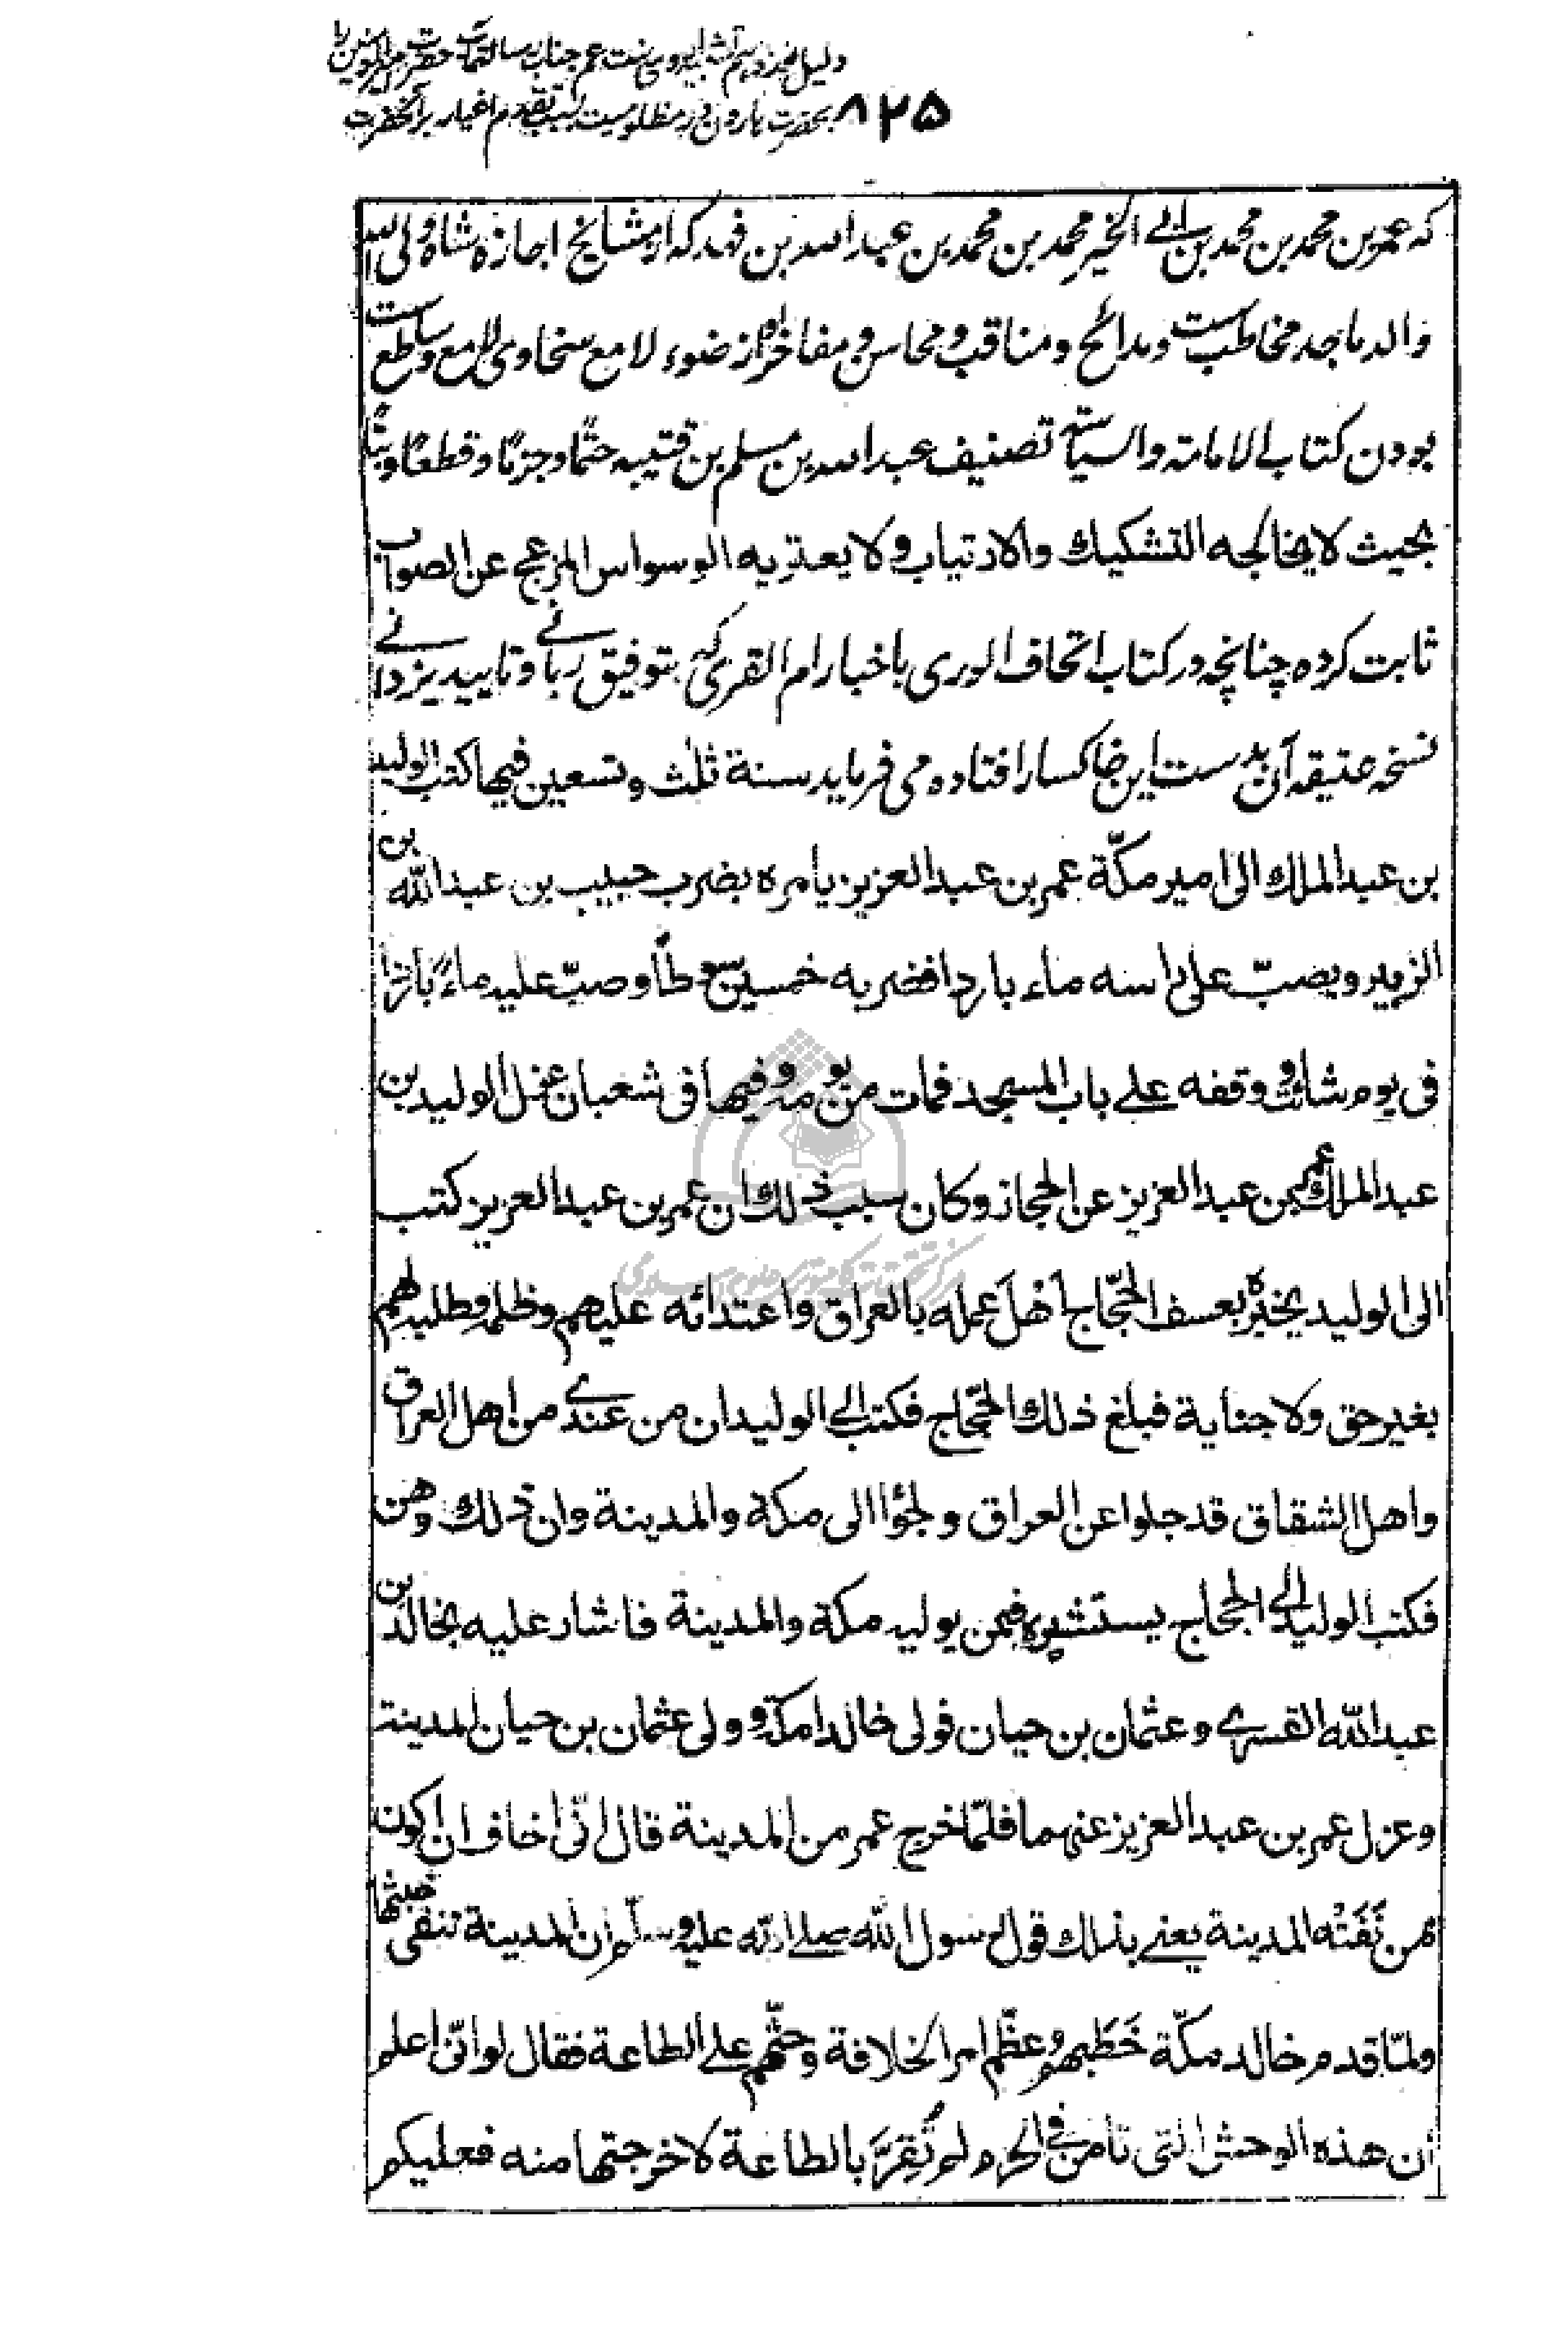 دلیل نوزدهم تشبیه دوین بنت عم جناب رسالتمآب حضرت امیرالمؤمنین را
بحضرت هارون در مظلومیت بسبب تقدم اغیار بر آنحضرت
۸۲۵
که عمر بن محمد بن محمد بن ابی الخیر محمد بن محمد بن عبد الله بن فهد که از مشایخ اجازه شاه ولی الله
والد ماجد مخاطبست و مدائح و مناقب و محاسن و مفاخر او از ضوء لامع سخاوی لامع و ساطع است
بودن کتاب الامامة والسیاسة تصنیف عبد الله بن مسلم بن قتیبه حتمًا و جزمًا و قطعًا و بتًّا
بحیث لا یخالجه التشکیك والارتیاب ولا یعتریه الوسواس المزعج عن الصواب
ثابت کرده چنانچه در کتاب اتحاف الوری باخبار ام القری که بتوفیق ربانے و تایید یزدانے
نسخه عتیقه آن بدست این خاکسار افتاده می فرماید سنة ثلث وتسعین فیها کتب الولید
بن عبد الملك الی امیر مکّة عمر بن عبد العزیز یامره بضرب حبیب بن عبد الله بن
الزبیر ویصبّ علی راسه ماء باردا فضربه خمسین سوطًا وصبّ علیه ماءً باردًا
فی یوم شات ووقفه علے باب المسجد فمات من یومه وفیها فی شعبان عزل الولید بن
عبد الملك عمر بن عبد العزیز عن الحجاز وکان سبب ذلك ان عمر بن عبد العزیز کتب
الی الولید یخبرُه بعسف الحجّاج اَهْلَ عمله بالعراق واعتدائه علیهم وظلمه لهم
بغیر حق ولا جنایة فبلغ ذلك الحجّاج فکتب الے الولید ان من عندے من اهل العراق
واهل الشقاق قد جلوا عن العراق ولجؤا الی مکة والمدینة وان ذلك وهن
فکتب الولید الے الحجاج یستشیره فیمن یولیه مکة والمدینة فاشار علیه بخالد بن
عبد اللّٰه القسرے وعثمان بن حیان فولی خالدا مکة وولی عثمان بن حیان المدینة
وعزل عمر بن عبد العزیز عنهما فلمّا خرج عمر من المدینة قال انّی اخاف ان اکون
ممن نَفَتْه المدینة یعنے بذلك قول رسول اللّٰه صلے الله علیه وسلّم ان المدینة تنفی خبثها
ولمّا قدم خالد مکّة خَطَبهم وعظّم امر الخلافة وحثّهم علے الطاعة فقال لو انّی اعلم
ان هذه الوحش التی تامن فی الحرم لو لم تُقِرَّ بالطاعة لاخرجتها منه فعلیکم